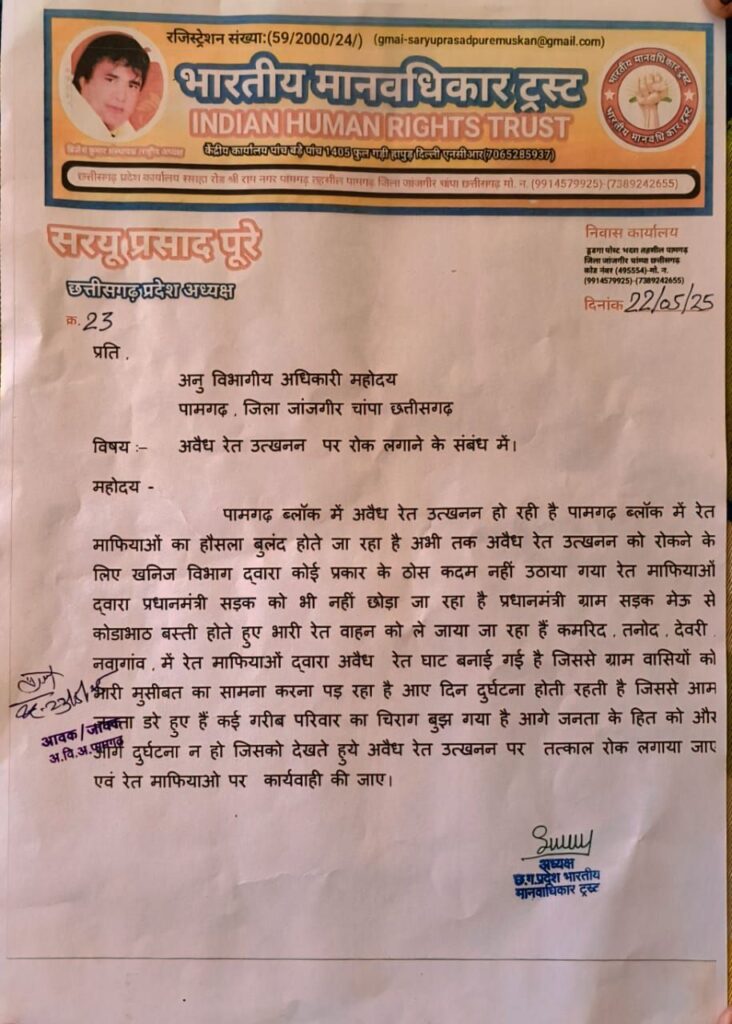 रजिस्ट्रेशन संख्या:(59/2000/24/) (gmai-saryuprasadpuremuskan@gmail.com)
भारतीय मानवधिकार ट्रस्ट
INDIAN HUMAN RIGHTS TRUST
केंद्रीय कार्यालय पांच बड़े पांच 1405 फुल गढ़ी हापुड़ दिल्ली एनसीआर(7065285937)
भारतीय मानवधिकार ट्रस्ट
भारतीय मानवधिकार ट्रस्ट
छत्तीसगढ़ प्रदेश कार्यालय ससहा रोड श्री राम नगर पामगढ़ तहसील पामगढ़ जिला जांजगीर चांपा छत्तीसगढ़ मो. न. (9914579925)-(7389242655)
सरयू प्रसाद पूरे
छत्तीसगढ़ प्रदेश अध्यक्ष
निवास कार्यालय
डुडगा पोस्ट भदरा तहसील पामगढ़
जिला जांजगीर चाम्पा छत्तीसगढ़
कोड नंबर (495554)-मो. न.
(9914579925)-(7389242655)
दिनांक 22/05/25
क्र. 23
प्रति .
अनु विभागीय अधिकारी महोदय
पामगढ़ . जिला जांजगीर चांपा छत्तीसगढ़
विषय :– अवैध रेत उत्खनन पर रोक लगाने के संबंध में।
महोदय -
पामगढ़ ब्लॉक में अवैध रेत उत्खनन हो रही है पामगढ़ ब्लॉक में रेत
माफियाओं का हौसला बुलंद होते जा रहा है अभी तक अवैध रेत उत्खनन को रोकने के
लिए खनिज विभाग द्वारा कोई प्रकार के ठोस कदम नहीं उठाया गया रेत माफियाओं
द्वारा प्रधानमंत्री सड़क को भी नहीं छोड़ा जा रहा है प्रधानमंत्री ग्राम सड़क मेऊ से
कोडाभाठ बस्ती होते हुए भारी रेत वाहन को ले जाया जा रहा हैं कमरिद . तनोद . देवरी .
नवागांव . में रेत माफियाओं द्वारा अवैध रेत घाट बनाई गई है जिससे ग्राम वासियों को
भारी मुसीबत का सामना करना पड़ रहा है आए दिन दुर्घटना होती रहती है जिससे आम
डरे हुए हैं कई गरीब परिवार का चिराग बुझ गया है आगे जनता के हित को और
आगे दुर्घटना न हो जिसको देखते हुये अवैध रेत उत्खनन पर तत्काल रोक लगाया जाए
एवं रेत माफियाओ पर कार्यवाही की जाए।
आवक/जावक
अ.वि.अ.पामगढ़
अध्यक्ष
छ.ग.प्रदेश भारतीय
मानवाधिकार ट्रस्ट